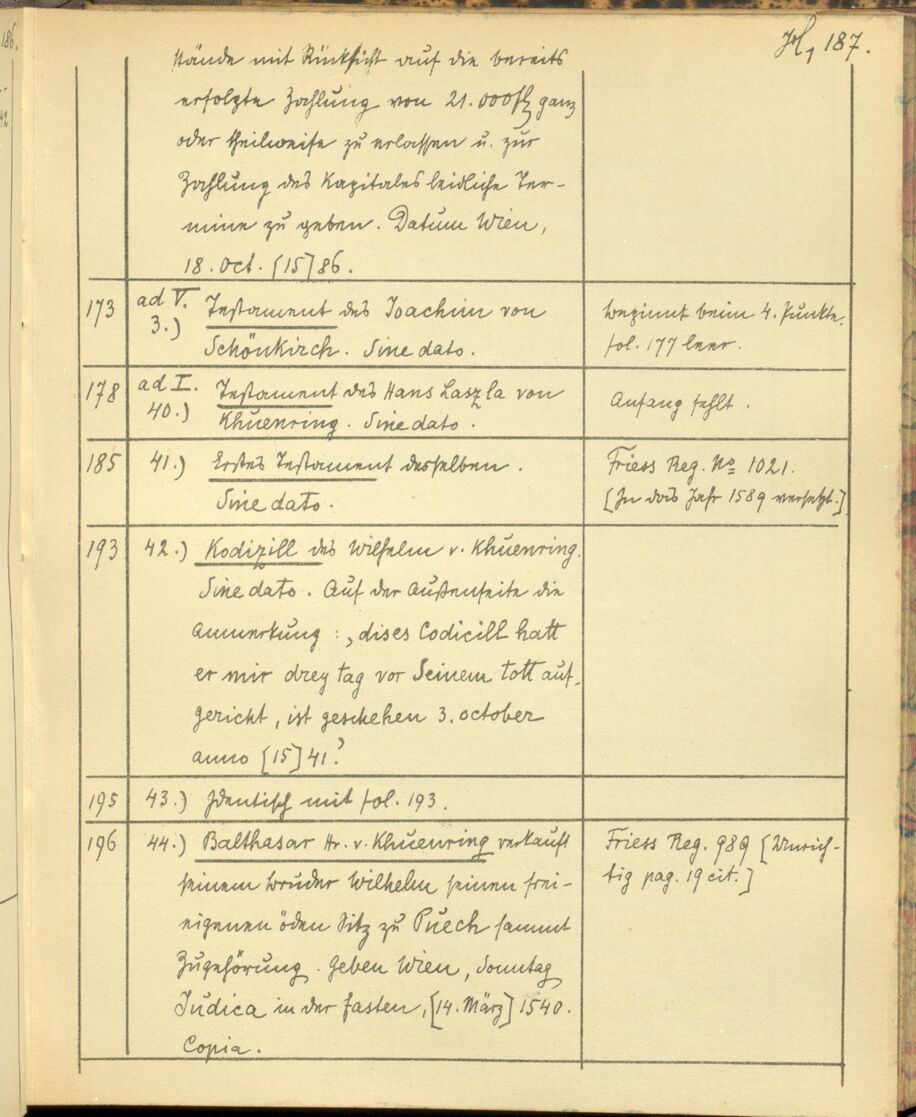 187.
stände mit Rücksicht auf die bereits
erfolgte Zahlung von 21.000 fl ganz
oder theilweise zu erlassen u. zur
Zahlung des Kapitales leidliche Ter-
mine zu geben. Datum Wien,
18. Oct. [15]86.
173 ad V. 3.) Testament des Joachim von
Schönkirch. Sine dato.
beginnt beim 4. Punkte.
fol. 177 leer.
178 ad I. 40.) Testament des Hans Laszla von
Khuenring. Sine dato.
Anfang fehlt.
185 41.) Erstes Testament desselben.
Sine dato.
Friess Reg. No 1021.
[In das Jahr 1589 versetzt.]
193 42.) Kodizill des Wilhelm v. Khuenring.
Sine dato. Auf der Außenseite die
Anmerkung: „dises Codicill hatt
er mir drey tag vor Seinem tott auf-
gericht, ist geschehen 3. october
anno [15]41.“
195 43.) Identisch mit fol. 193.
196 44.) Balthasar Hr. v. Khuenring verkauft
seinem Bruder Wilhelm seinen frei-
eigenen öden Sitz zu Puech sammt
Zugehörung. Geben Wien, Sonntag
Judica in der Fasten, [14. März] 1540.
Copia.
Friess Reg. 989 [Unrich-
tig pag. 19 cit.]
186.